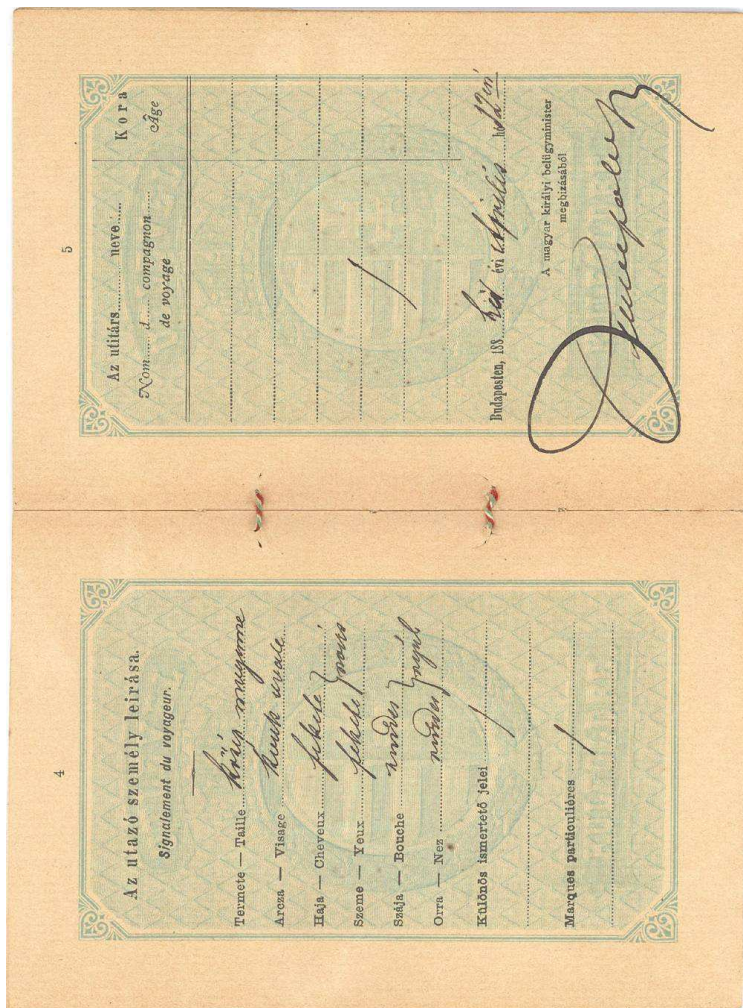 4
Az utazó személy leirása.
Signalement du voyageur.
Termete — Taille közép moyenne
Arcza — Visage
Haja — Cheveux fekete
Szeme — Yeux fekete
Szája — Bouche rendes
Orra — Nez rendes
Különös ismertető jelei /
Marques particulières /
5
Az utitárs neve Kora
Nom d compagnon Âge
de voyage
/
Budapesten, 188 évi április hó 12 én
A magyar királyi belügyminister
megbizásából